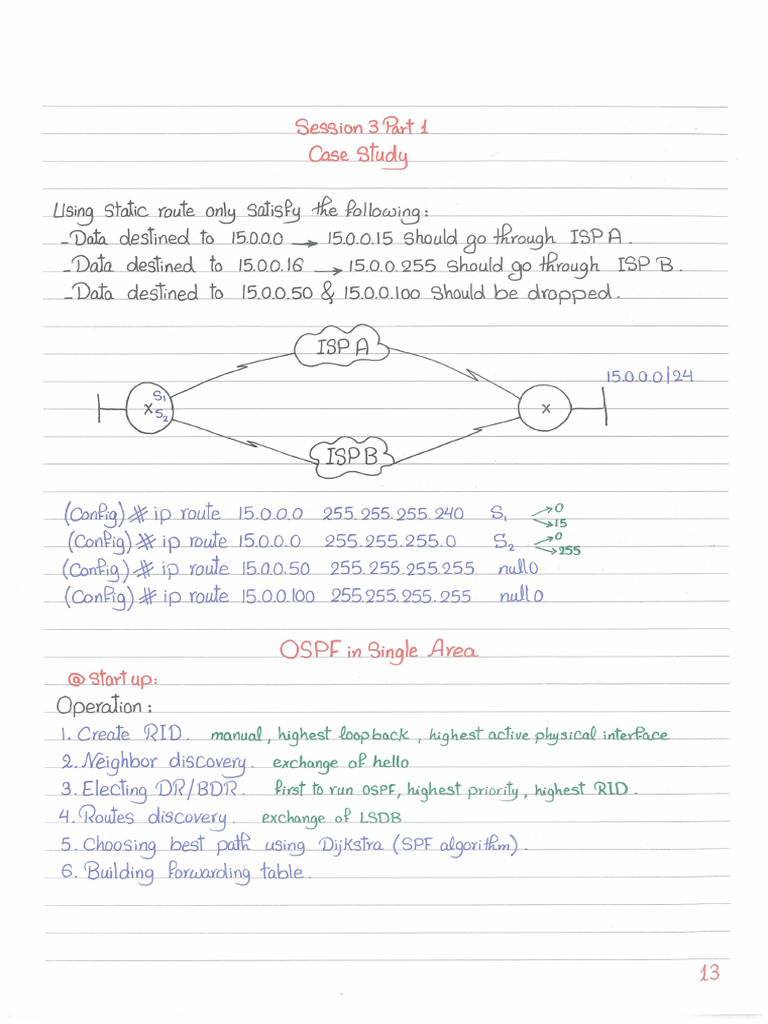 Session 3 Part 1
Case Study
Using static route only satisfy the following:
- Data destined to 15.0.0.0 → 15.0.0.15 should go through ISP A.
- Data destined to 15.0.0.16 → 15.0.0.255 should go through ISP B.
- Data destined to 15.0.0.50 & 15.0.0.100 should be dropped.
ISP A
15.0.0.0/24
S1
X
S2
X
ISP B
(Config)# ip route 15.0.0.0 255.255.255.240 S1 → 0 → 15
(Config)# ip route 15.0.0.0 255.255.255.0 S2 → 0 → 255
(Config)# ip route 15.0.0.50 255.255.255.255 null0
(Config)# ip route 15.0.0.100 255.255.255.255 null0
OSPF in Single Area
@ Start up:
Operation:
1. Create RID. manual, highest loopback, highest active physical interface
2. Neighbor discovery. exchange of hello
3. Electing DR/BDR. first to run OSPF, highest priority, highest RID.
4. Routes discovery. exchange of LSDB
5. Choosing best path using Dijkstra (SPF algorithm).
6. Building forwarding table.
13